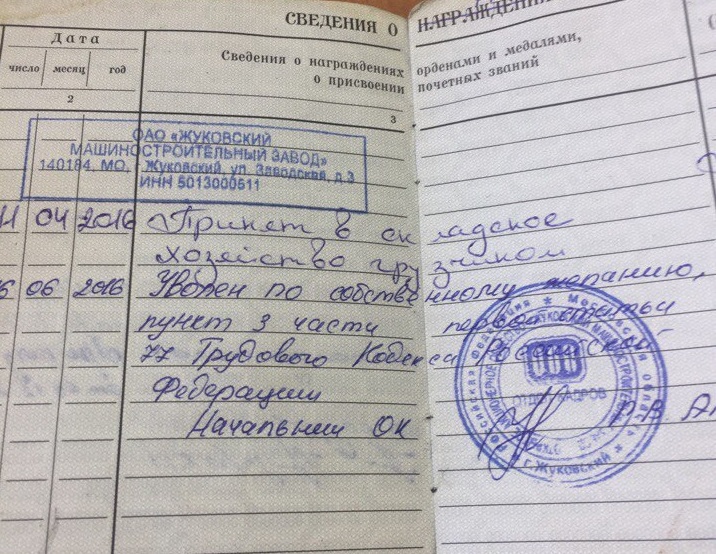 СВЕДЕНИЯ О НАГРАЖДЕНИ
Дата
число месяц год
Сведения о награждениях орденами и медалями,
о присвоении почетных званий
2 3
ОАО «ЖУКОВСКИЙ
МАШИНОСТРОИТЕЛЬНЫЙ ЗАВОД»
140184, МО, г. Жуковский, ул. Заводская, д.3
ИНН 5013000511
11 04 2016 Принят в складское
хозяйство грузчиком
6 06 2016 Уволен по собственному желанию,
пункт 3 части первой статьи
77 Трудового Кодекса Российской
Федерации
Начальник ОК
Российская Федерация * Московская область
ОТДЕЛ КАДРОВ
г. Жуковский